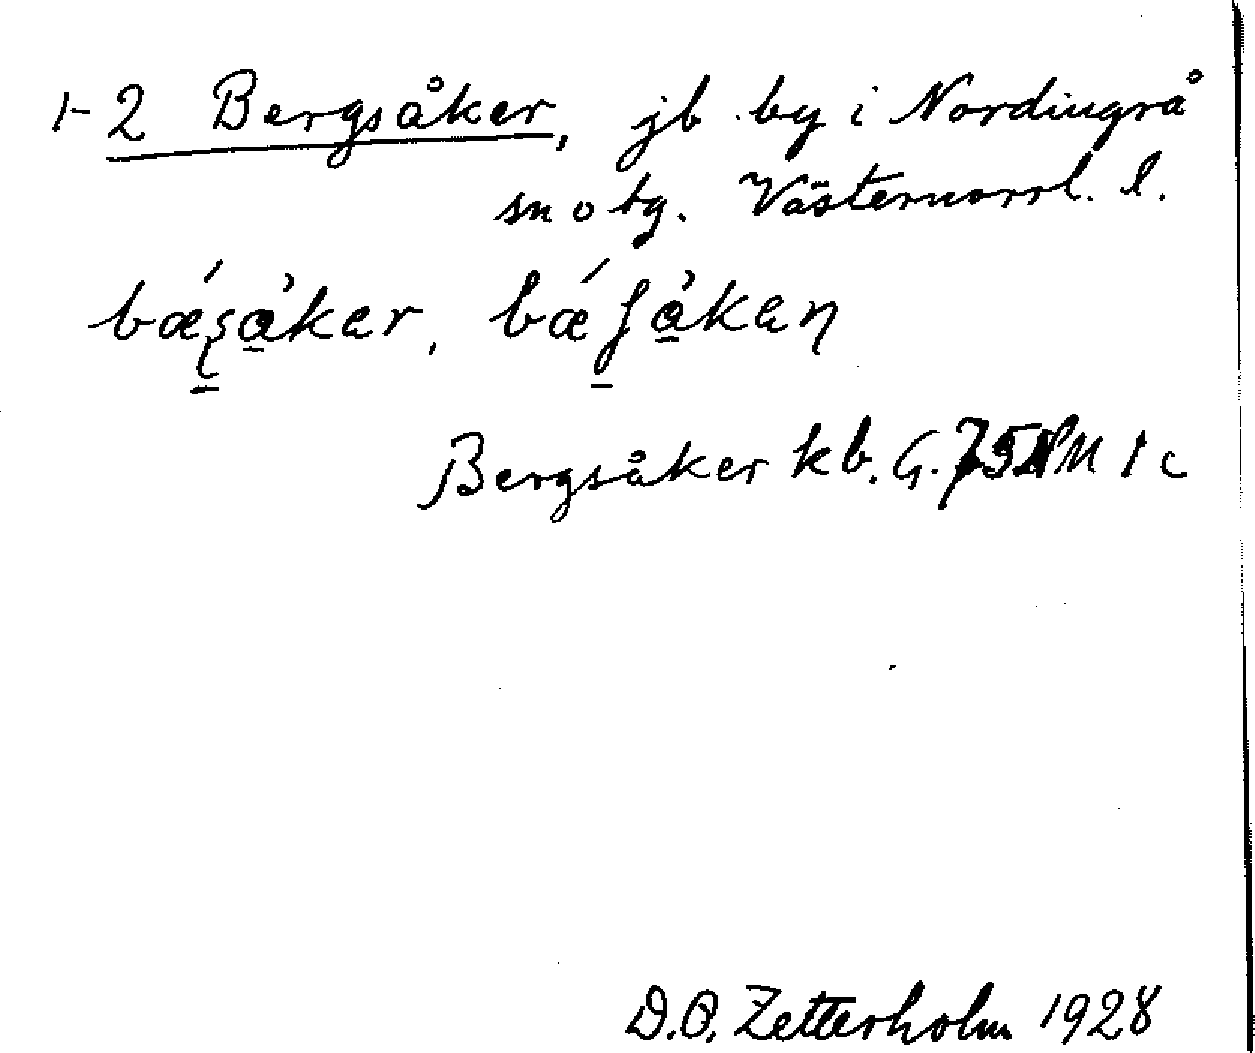 1-2 Bergsåker, jb by i Nordingrå
sn o tg. Västernorrl. l.
bǽsåker, bǽʃåkeɳ
Bergsåker kb. G. M 1 c
D.O. Zetterholm 1928